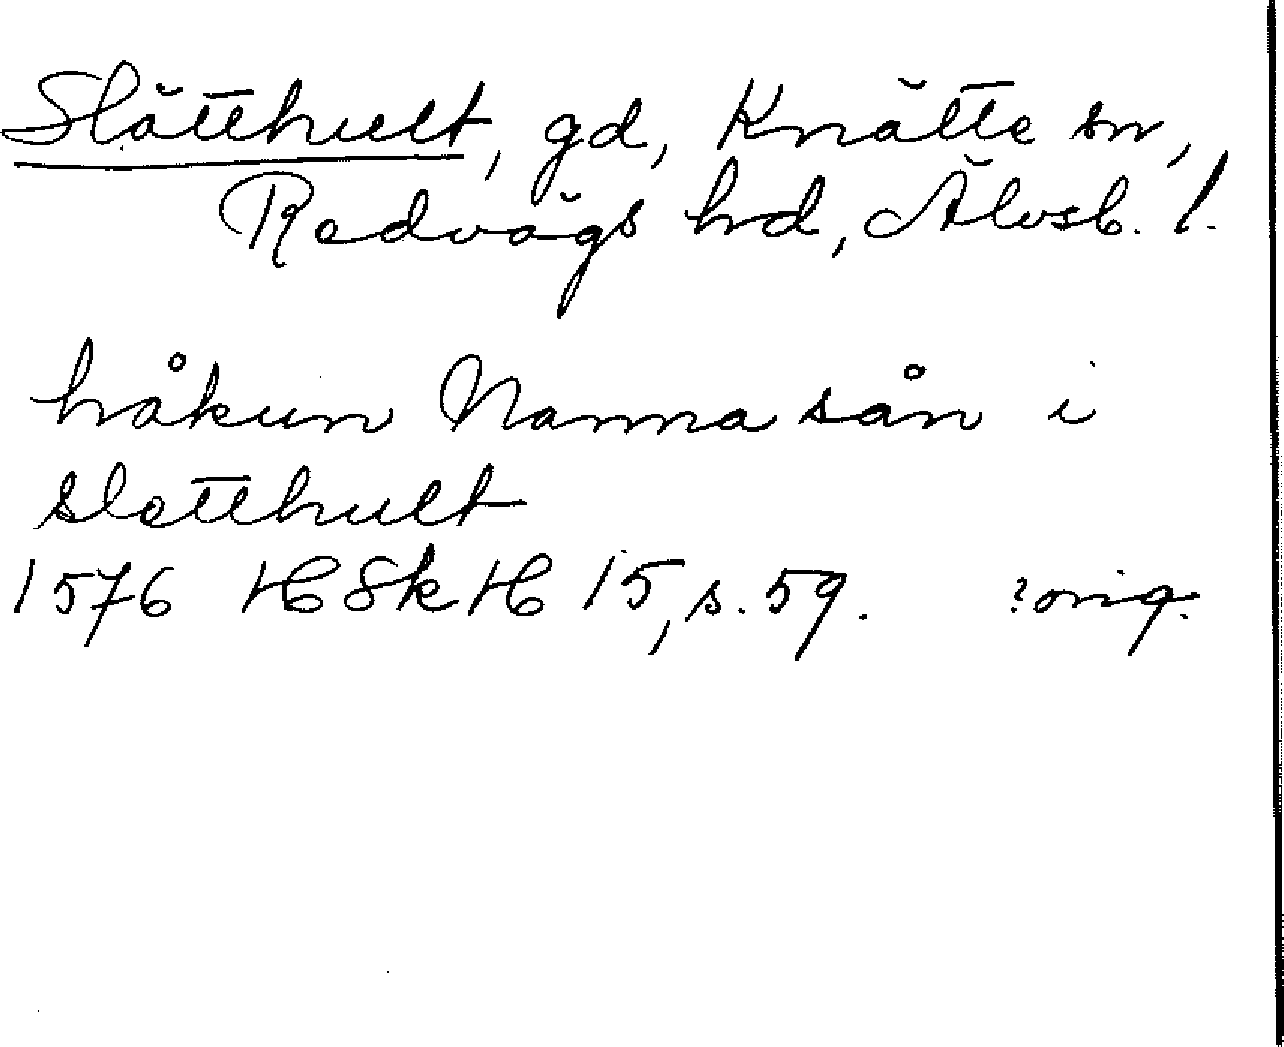 Slätthult, gd, Knätte sn,
Redvägs hd, Älvsb. l.
håkun Nanna sån i
sletthult
1576 HSkH 15, s. 59. ? orig.